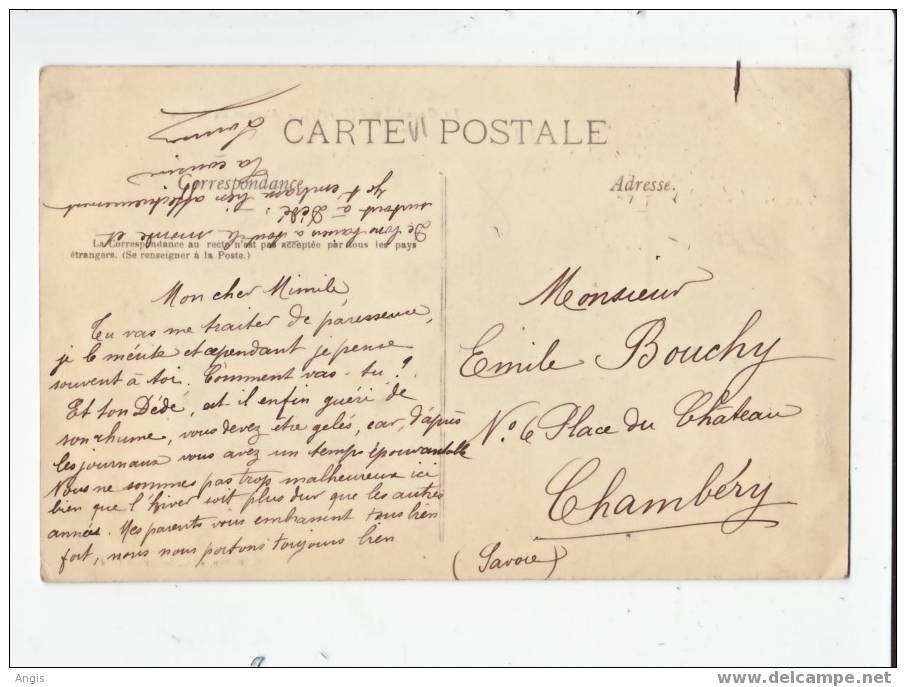 CARTE POSTALE
Correspondance
Adresse.
La Correspondance au recto n'est pas acceptée par tous les pays
étrangers. (Se renseigner à la Poste.)
Mon cher Mimile
Tu vas me traiter de paresseuse,
je le mérite et cependant je pense
souvent à toi. Comment vas-tu ?
Et ton Dédé, est-il enfin guéri de
son rhume, vous devez être gelés, car, d'après
les journaux vous avez un temps épouvantable
Nous ne sommes pas trop malheureux ici
bien que l'hiver soit plus dur que les autres
années. Mes parents vous embrassent tous bien
fort, nous nous portons toujours bien
De bon à tout le monde et
surtout à Dédé.
Je t'embrasse bien affectueusement
Ta cousine
Monsieur
Emile Bouchy
No 6 Place du Château
Chambéry
(Savoie)
Angis
www.delcampe.net